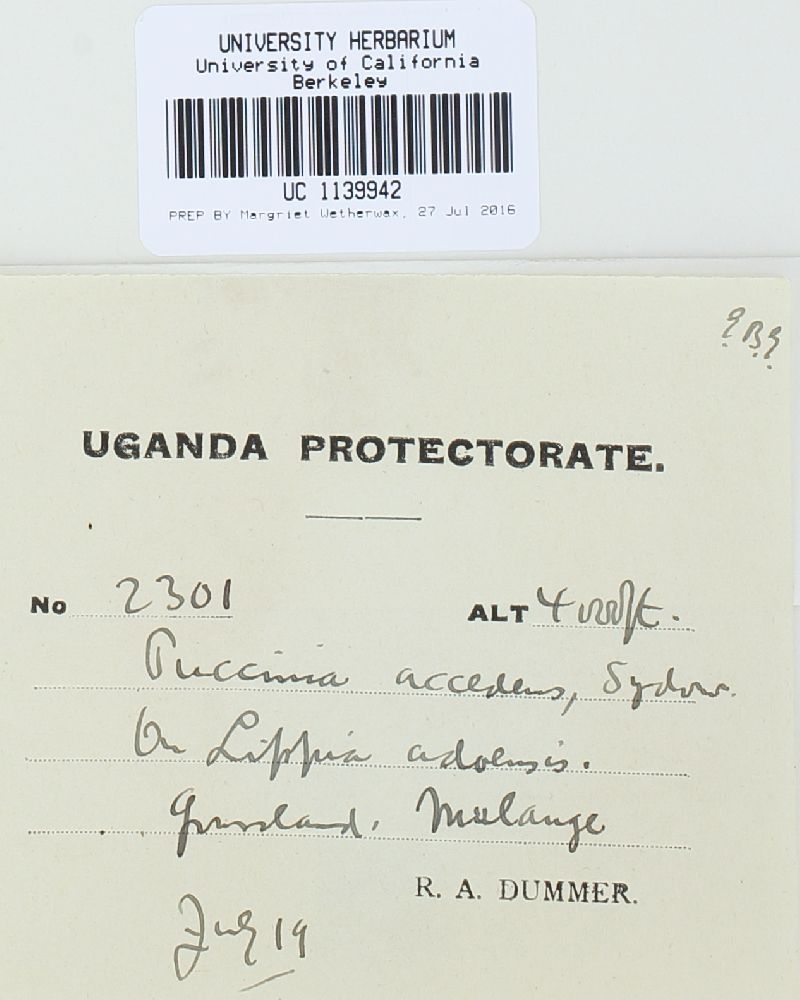 UNIVERSITY HERBARIUM
University of California
Berkeley
UC 1139942
PREP BY Margriet Wetherwax, 27 Jul 2016
UGANDA PROTECTORATE.
No 2301 ALT 4000ft.
Puccinia accedens, Sydow.
On Lippia adoensis.
Grassland. Mulange
R. A. DUMMER.
July 19